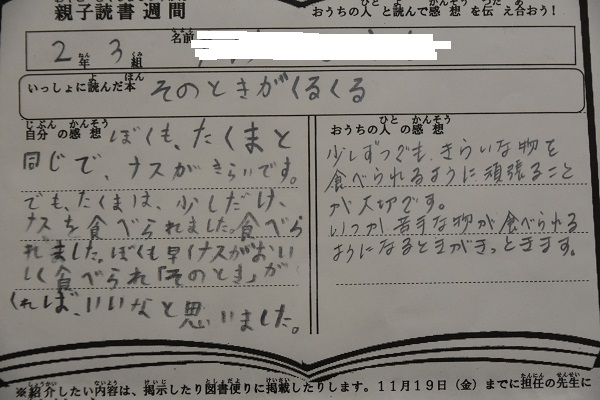 親子読書週間
おうちの人と読んで感想を伝え合おう!
2年3組
名前
いっしょに読んだ本 そのときがくるくる
自分の感想 ぼくも、たくまと
同じで、ナスがきらいです。
でも、たくまは、少しだけ、
ナスを食べられました。食べら
れました。ぼくも早くナスがおい
しく食べられ「そのとき」が
くれば、いいなと思いました。
おうちの人の感想
少しずつでも、きらいな物を
食べられるように頑張ること
が大切です。
いつか苦手な物が食べられる
ようになるときがきっときます。
※紹介したい内容は、掲示したり図書便りに掲載したりします。11月19日(金)までに担任の先生に